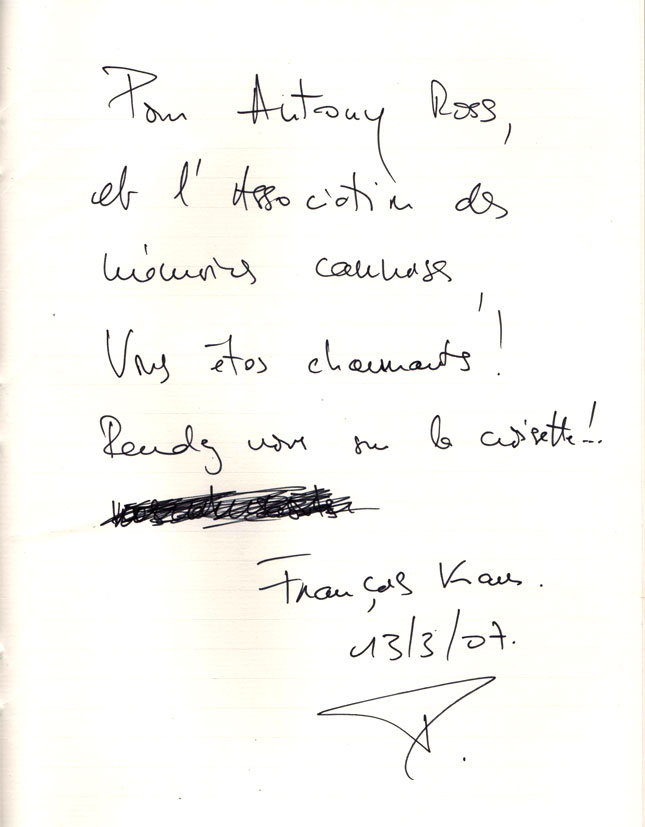 Pour Antony Ross,
et l'Association des
mémoires cannoises,
Vous êtes charmants !
Rendez vous sur la croisette !..
François Kraus.
13/3/07.